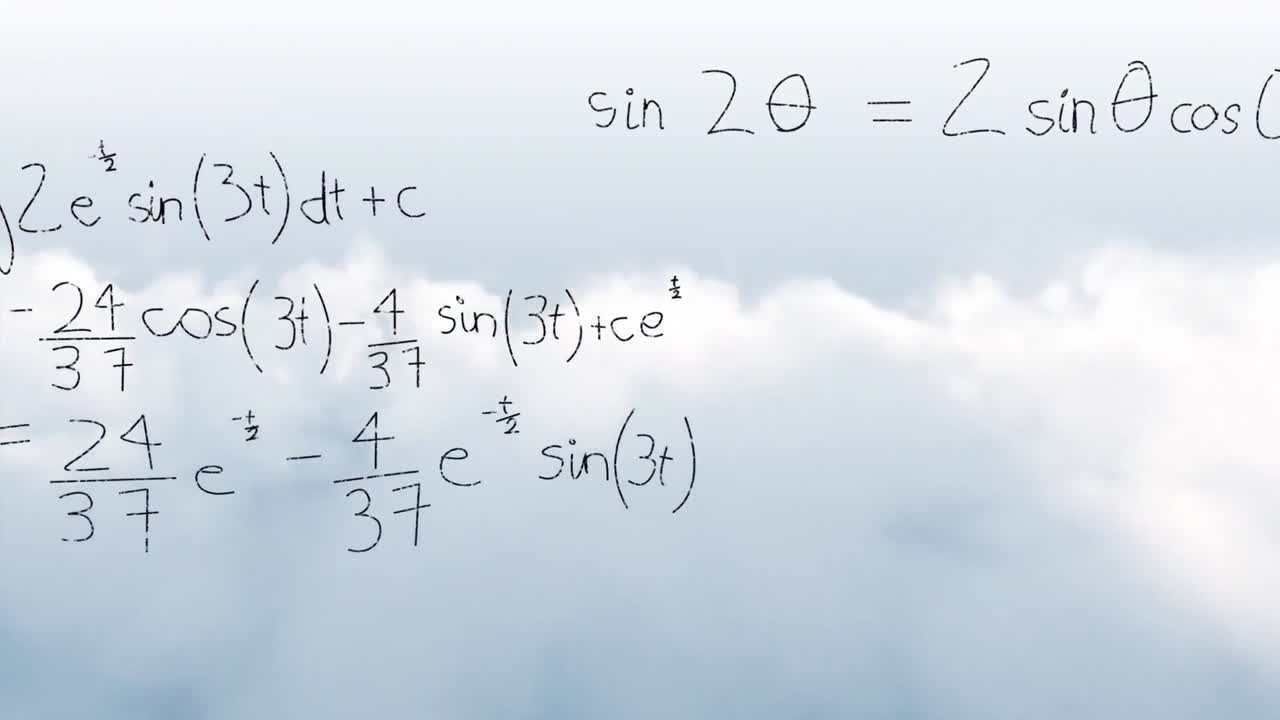 sin 2θ = 2 sinθ cos
∫2e^{-t/2} sin(3t)dt + c
- 24/37 cos(3t) - 4/37 sin(3t) + ce^{t/2}
= 24/37 e^{-t/2} - 4/37 e^{-t/2} sin(3t)